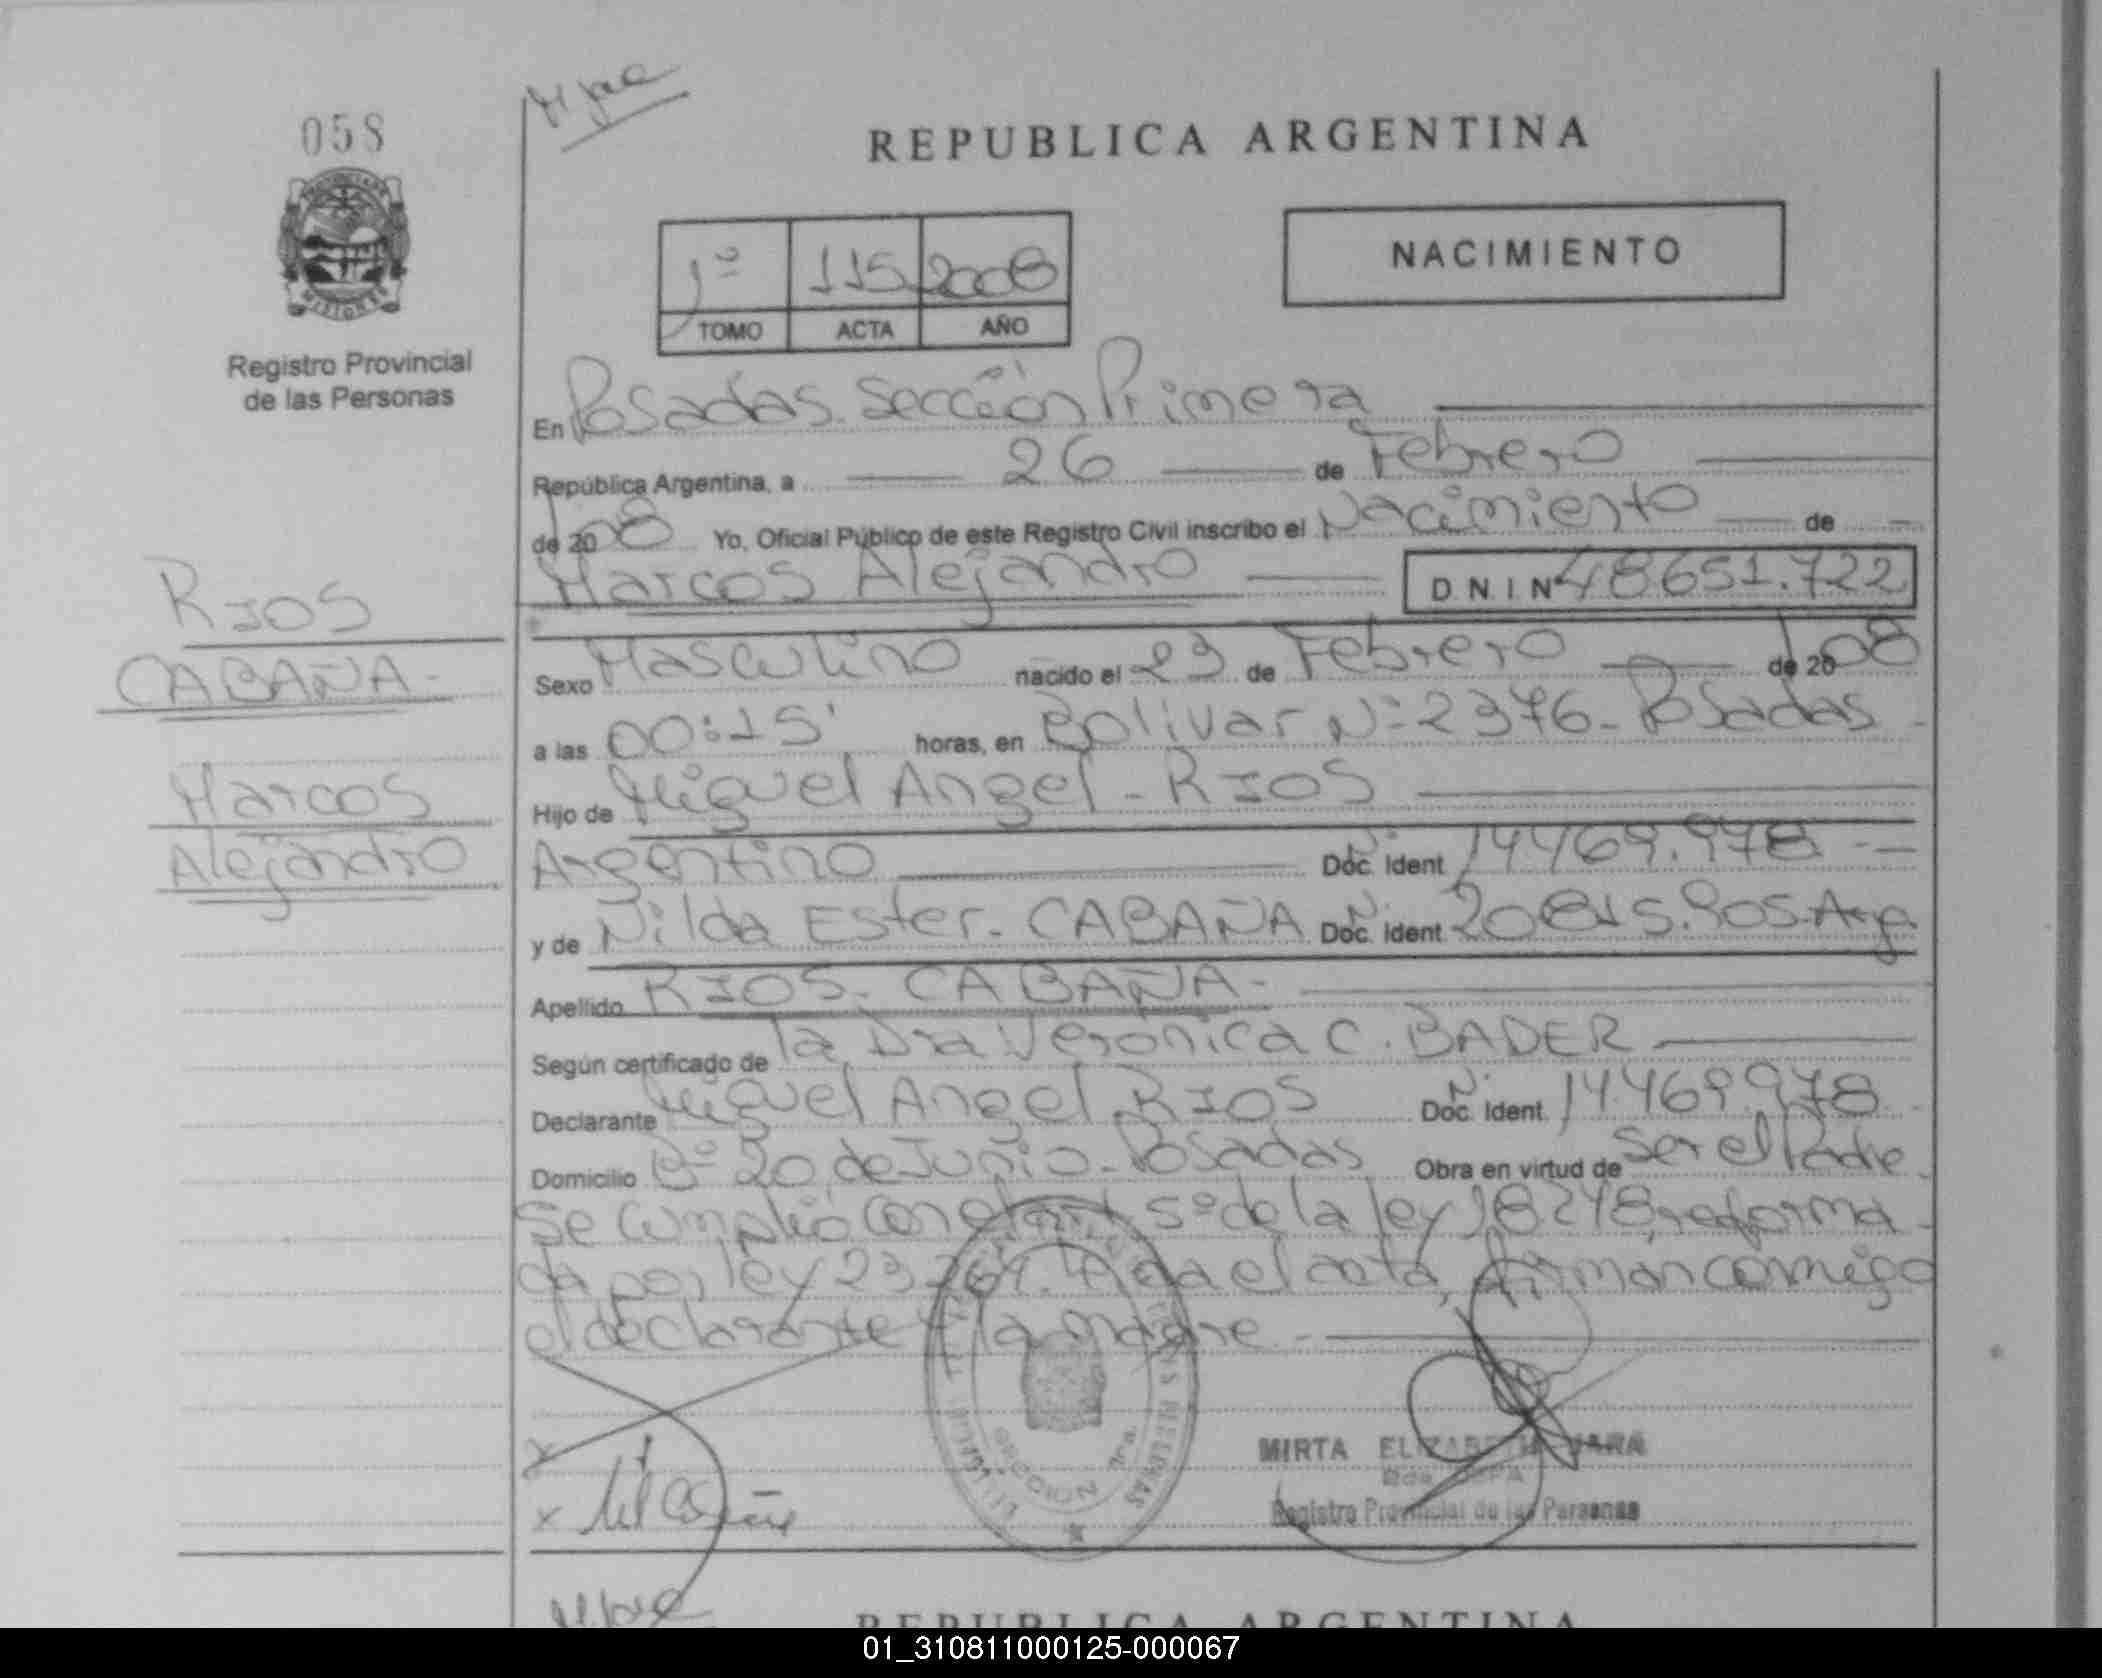 058
REPUBLICA ARGENTINA
PROVINCIA DE
MISIONES
Registro Provincial
de las Personas
1º 115 2008
TOMO ACTA AÑO
NACIMIENTO
En Posadas. Sección Primera
República Argentina, a 26 de Febrero
de 2008 Yo, Oficial Público de este Registro Civil inscribo el Nacimiento de
Marcos Alejandro D.N.I. Nº 48651.722
RIOS
CABAÑA-
Marcos
Alejandro
Sexo Masculino nacido el 23 de Febrero de 2008
a las 00:15' horas, en Bolivar Nº 2376- Posadas-
Hijo de Miguel Angel - RIOS
Argentino Doc. Ident. Nº 14469.978
y de Nilda Ester. CABAÑA Doc. Ident. Nº 20815.905-Arg.
Apellido RIOS. CABAÑA-
Según certificado de la Dra Veronica C. BADER
Declarante Miguel Angel RIOS Doc. Ident. Nº 14.469.978
Domicilio Bº 20 de Junio- Posadas Obra en virtud de Ser el Padre
Se cumplió con el art 5º de la ley 18248, reforma-
da por ley 23.264. Leída el acta, firman conmigo
el declarante y la madre.
MIRTA ELIZABETH JARA
Registro Provincial de las Personas
SECCION 1ra.
REPUBLICA ARGENTINA
01_310811000125-000067